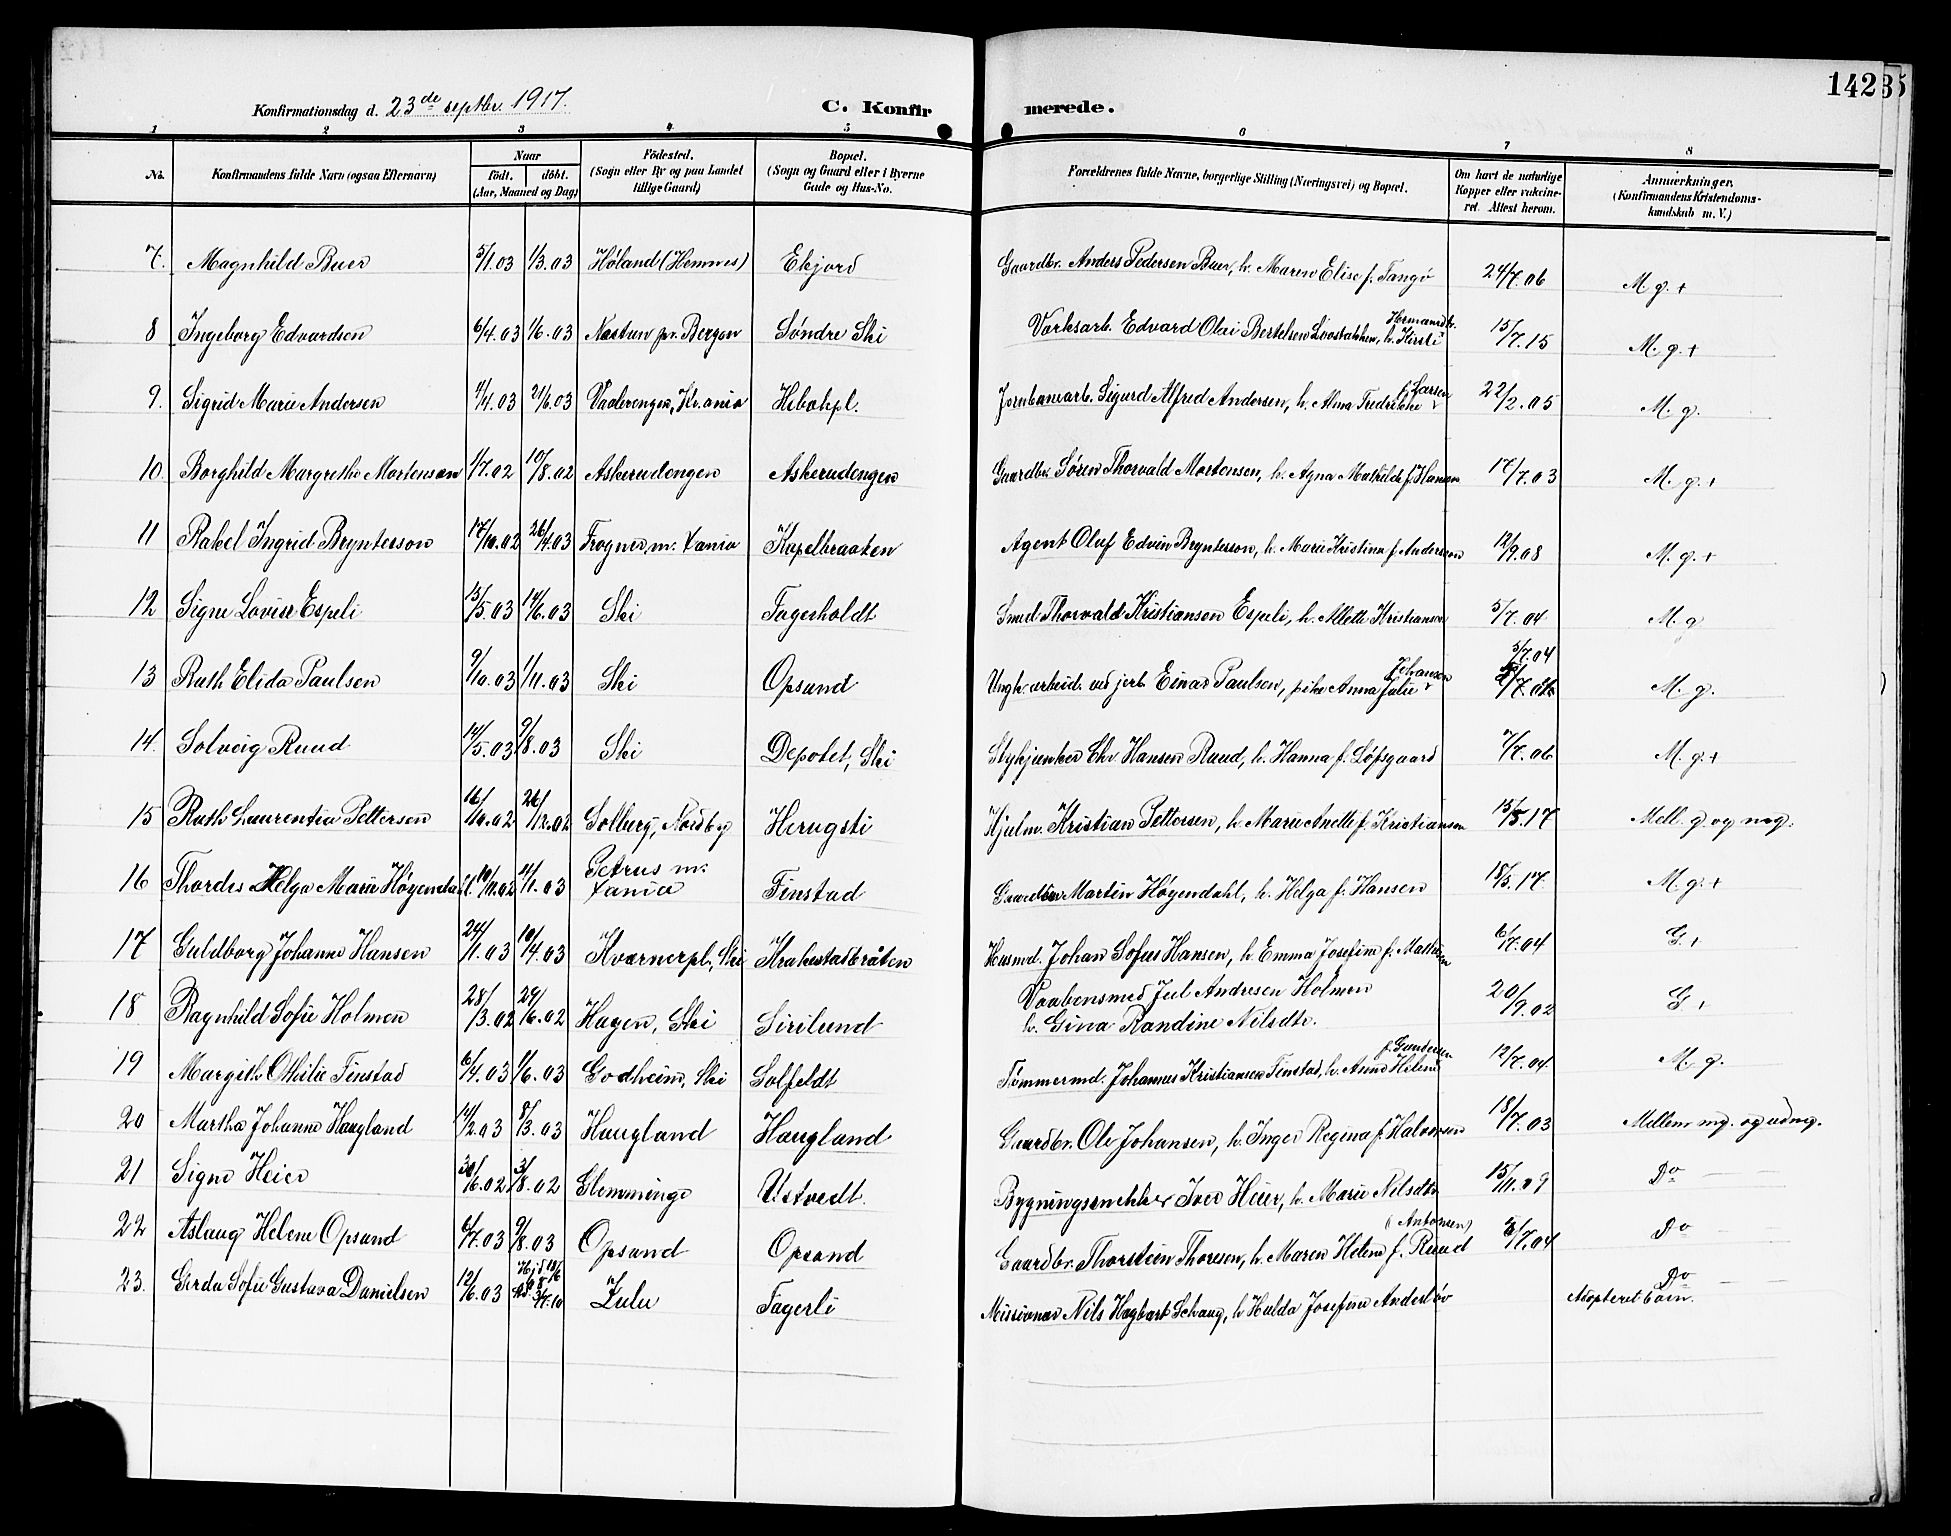 142
Konfirmationsdag d. 23de septbr. 1917. C. Konfirmerede.
1 2 3 4 5 6 7 8
No. Konfirmandens fulde Navn (ogsaa Efternavn) Naar født. døbt. (Aar, Maaned og Dag) Fødested. (Sogn eller By og paa Landet tillige Gaard) Bopæl. (Sogn og Gaard eller i Byerne Gade og Hus-No. Forældrenes fulde Navne, borgerlige Stilling (Næringsvei) og Bopæl. Om havt de naturlige Kopper eller vakcineret. Attest herom. Anmærkninger. (Konfirmandens Kristendomskundskab m. V.)
7. Magnhild Buer 5/1.03 1/3.03 Høland (Hemnes) Ekjord Gaardbr. Anders Pedersen Buer, h. Maren Elise f. Tangø 24/7.06 M g. +
8 Ingeborg Edvardsen 6/4.03 1/6.03 Nestun pr. Bergen Søndre Ski Værksarb. Edvard Olai Bertelsen, h. Kirsti Hermansdtr. 15/7.15 M. g. +
9. Sigrid Marie Andersen 4/4.03 21/6.03 Vaalerengen, Kr.ania Hebokpl. Jernbanearb. Sigurd Alfred Andersen, h. Alma Fredrikke f. Larsen 22/2.05 M. g.
10. Borghild Margrethe Mortensen 1/7.02 10/8.02 Askerudengen Askerudengen Gaardbr. Søren Thorvald Mortensen, h. Agna Mathilde f. Hansen 17/7.03 M. g. +
11 Rakel Ingrid Brynterson 17/10.02 26/4.03 Frogner m. Xania Kapelbraaten Agent Oluf Edvin Brynterson, h. Marie Kristina f. Andersen 12/9.08 M. g. +
12 Signe Lovise Espeli 13/5.03 14/6.03 Ski Fagerholdt Smed Thorvald Kristiansen Espeli, h. Allette Kristiansen 5/7.04 M. g
13 Ruth Elida Paulsen 9/10.03 1/11.03 Ski Opsund Ungk. arbeid. ved jerb. Einar Paulsen, pike Anna Julie Johansen 5/7.04 M. g.
14. Solveig Ruud 14/5.03 9/8.03 Ski Depotet, Ski Stykjunker Chr. Hansen Ruud, h. Hanna f. Løfsgaard 7/7.06 M. g. +
15 Ruth Laurentia Pettersen 16/10.02 26/12.02 Solberg, Nordby Herugsti Hjulm. Kristian Pettersen, h. Marie Anette f. Kristiansen 15/5.17 Mell. g. og mg.
16 Thordis Helga Marie Høyendahl. 10/11.02 11/1.03 Petrus m. Xania Finstad Gaardbr. Martin Høyendahl, h. Helga f. Hansen 15/5.17 M. g. +
17 Guldborg Johanne Hansen 24/1.03 10/4.03 Kværnerpl., Ski Krakestadbråten Husmd. Johan Sofus Hansen, h. Emma Josefine f. 6/7.04 G. +
18 Ragnhild Sofie Holmen 28/3.02 29/6.02 Hagen, Ski Sirilund Vaabensmed Jul Andresen Holmen
h. Gina Randine Nilsdtr. 20/9.02 G +
19 Margith Othilie Finstad 6/4.03 1/6.03 Godheim, Ski Solfeldt Tømmermd. Johannes Kristiansen Finstad, h. Anne Helene f. Gundersen 12/7.04 M. g.
20 Martha Johanne Haugland 14/2.03 8/3.03 Haugland Haugland Gaardbr. Ole Johansen, h. Inger Regina f. Halvorsen 18/7.03 Mellem mg. og udmg.
21 Signe Heier 30/6.02 3/8.02 Glemminge Ustvedt. Bygningssnekker Iver Heier, h. Marie Nilsdtr 15/11.09 Do
22 Aslaug Helene Opsund 6/7.03 9/8.03 Opsund Opsund Gaardbr. Thorstein Thoresen, h. Maren Helene f. Ruud (Antonsen) 5/7.04 Do
23. Gerda Sofie Gustava Danielsen 12/6.03 Hjd. 3/7.10 Zulu Fagerli Missionær Nils Hagbart Schaug, h. Hulda Josefine Andersløv Do Adopteret barn.